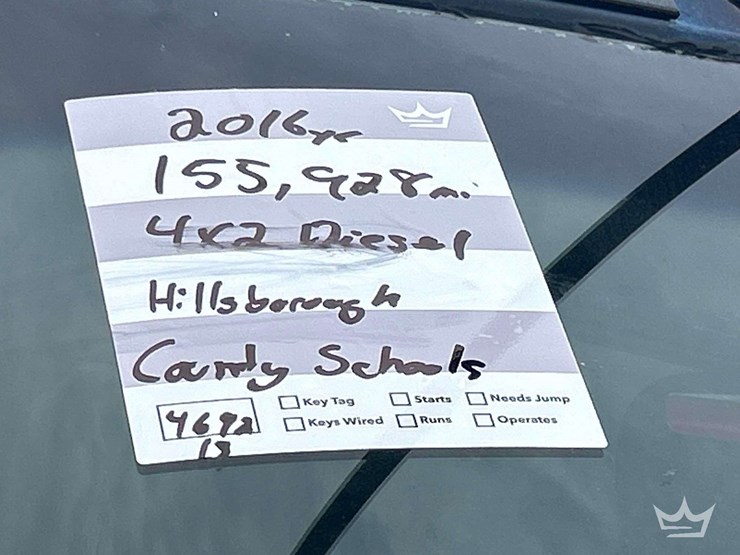 2016 yr
155,928 mi.
4x2 Diesel
Hillsborough
County Schools
Key Tag Starts Needs Jump
4692 Keys Wired Runs Operates
13